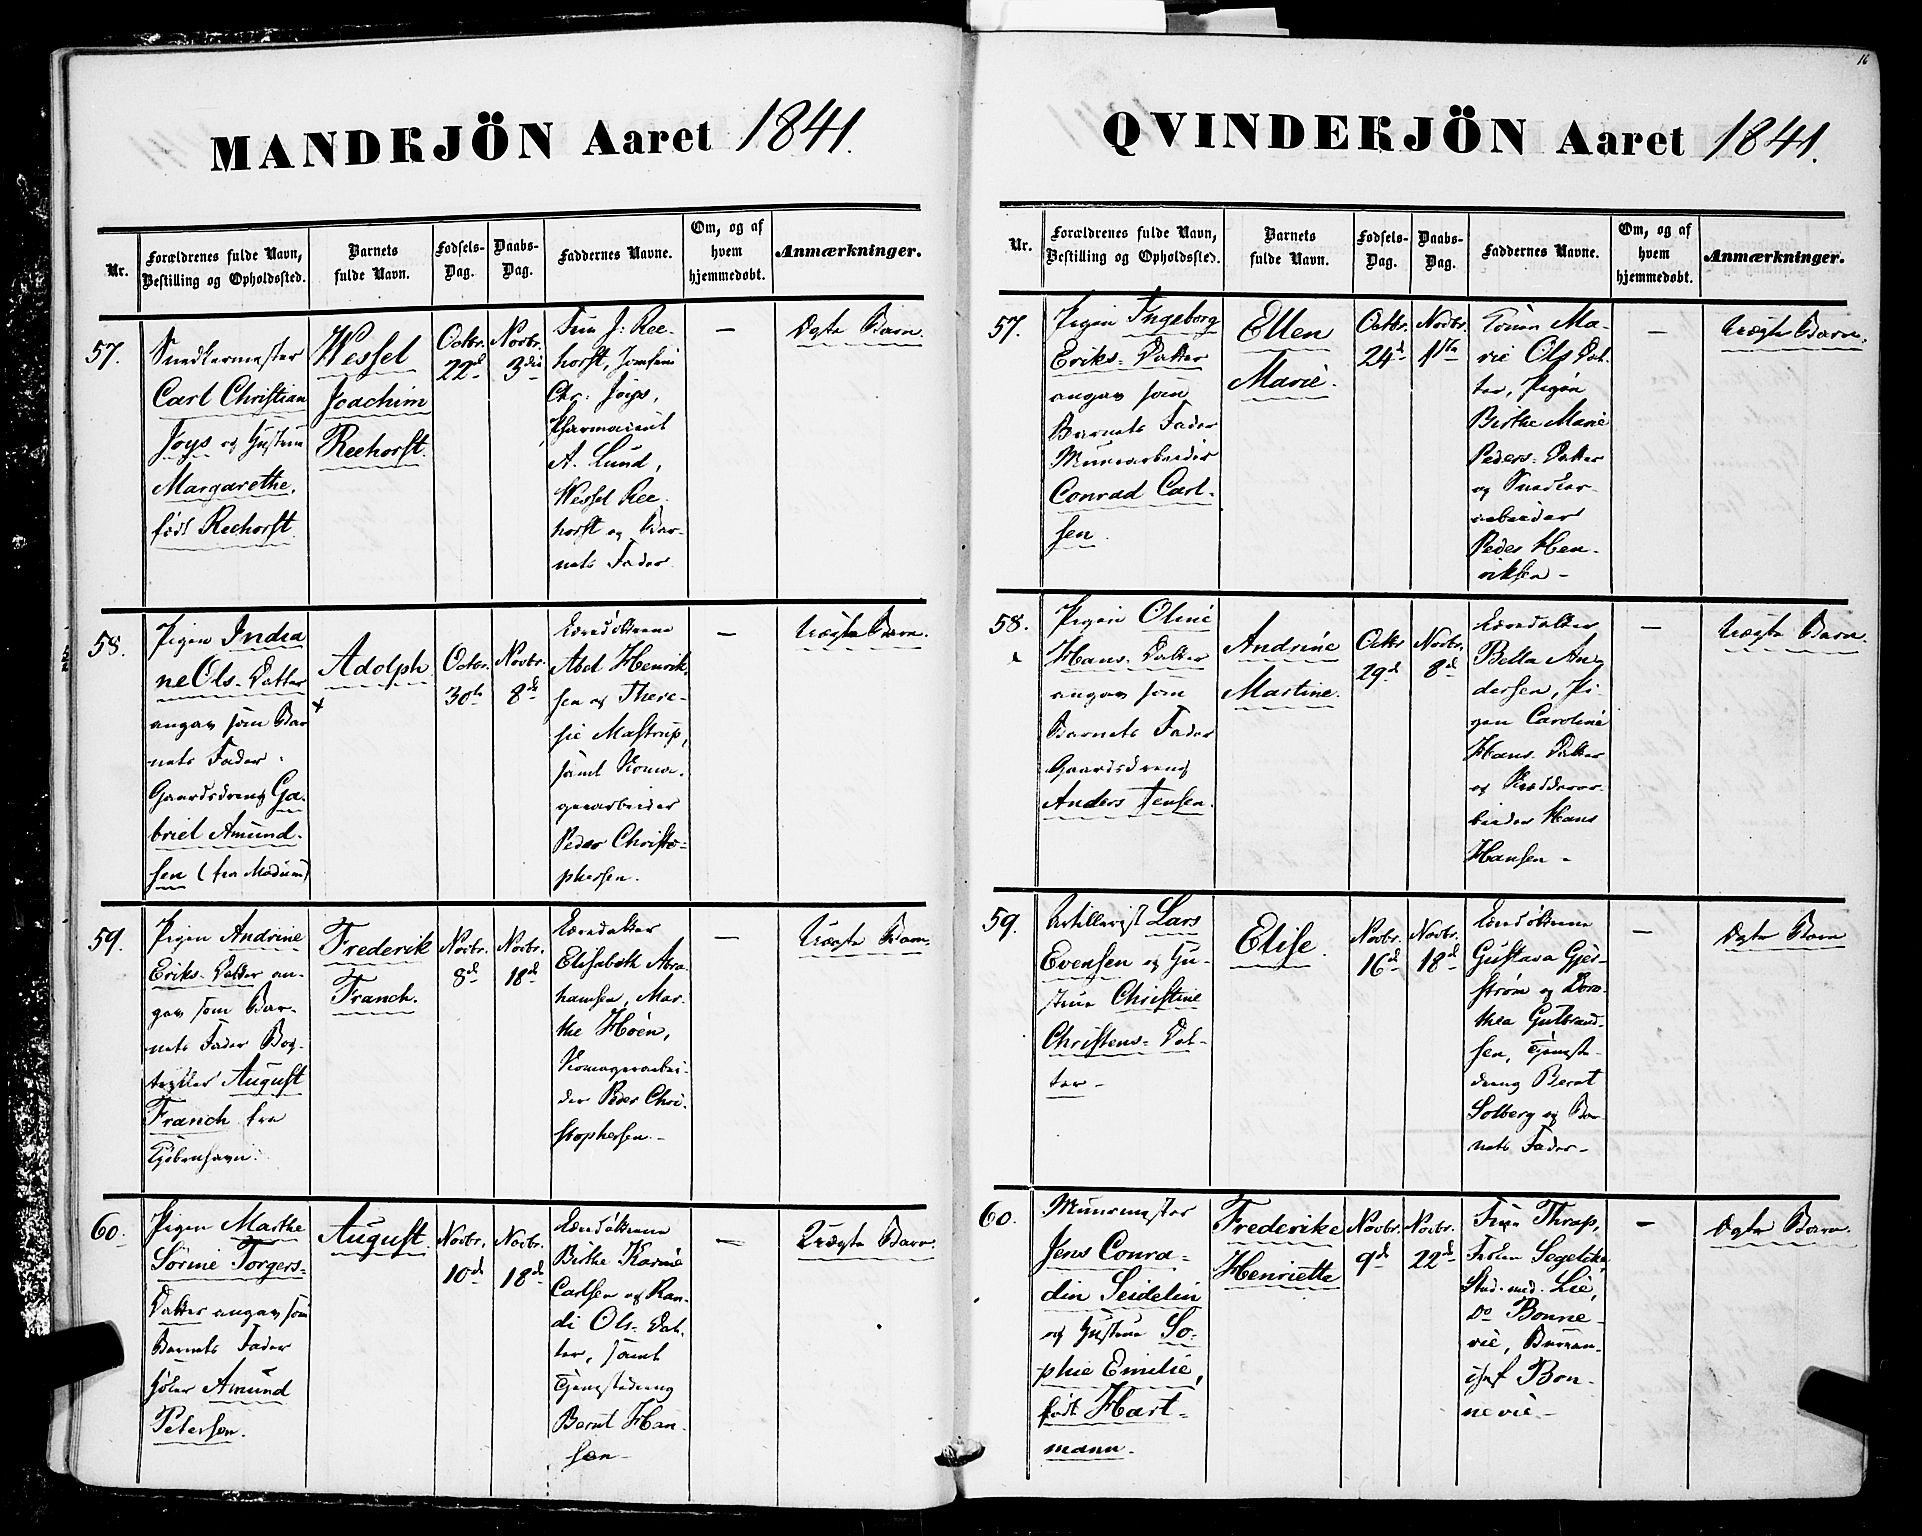 16
MANDKJÖN Aaret 1841.
Nr.
Forældrenes fulde Navn,
Bestilling og Opholdssted.
Barnets
fulde Navn.
Fødsels-
Dag.
Daabs-
Dag.
Faddernes Navne.
Om, og af
hvem
hjemmedøbt.
Anmærkninger.
57.
Snedkermester
Carl Christian
Joys og Hustrue
Margarethe,
født Reehorst.
Wessel
Joachim
Reehorst.
Octbr.
22d
Novbr.
3die
Frue J: Ree-
horst, Jomfrue
Chr: Joys,
Pharmaceut
A. Lund,
Wessel Ree-
horst og Bar-
nets Fader.
—
Ægte Barn.
58.
Pigen India
ne Ols-Datter
angav som Bar
nets Fader
Gaardsdreng Ga-
briel Amund-
sen (fra Modum)
Adolph.
Octbr.
30te
Novbr.
8de
Abel Henrik-
sen og There-
sie Mastrup,
samt
garearbeider
Peder Christo-
phersen.
—
Uægte Barn.
59.
Pigen Andrine
Eriks-Datter an-
gav som Bar-
nets Fader Bog-
trykker August
Franck fra
Kjöbenhavn.
Frederik
Franck.
Novbr.
8d
Novbr.
18d
Elisabeth Abra
hamsen, Mar-
the Höen,
Peder Chri-
stophersen.-
—
Uægte Barn
60.
Pigen Marthe
Sörine Torgers-
Datter angav som
Barnets Fader
Amund
Petersen.
August.
Novbr.
10d
Novbr.
18d
Birthe Karine
Carlsen og Ran-
di Ols-Dat-
ter, samt
Tjenestedreng
Bernt Han-
sen-
—
Uægte Barn.
QVINDEKJÖN Aaret 1841.
Nr.
Forældrenes fulde Navn,
Bestilling og Opholdssted.
Barnets
fulde Navn.
Fødsels-
Dag.
Daabs-
Dag.
Faddernes Navne.
Om, og af
hvem
hjemmedøbt.
Anmærkninger.
57.
Pigen Ingeborg
Eriks-Datter
angav som
Barnets Fader
Muurarbeider
Conrad Carl-
sen.
Ellen
Marie.
Octbr.
24d
Novbr.
1ste
Konen Ma-
rie Ols Dat-
ter, Pigen
Birthe Marie
Peders-Datter
og Snedker-
arbeider
Peder Hen-
riksen-
—
Uægte Barn.
58.
Pigen Oline
Hans-Datter
angav som
Barnets Fader
Gaardsdreng
Anders Jensen.
Andrine
Martine.
Octbr
29d
Novbr.
8d
Bella An-
dersen, Pi-
gen Caroline
Hans-Datter
og
beider Hans
Hansen-
—
Uægte Barn
59.
Artillerist Lars
Evensen og Hu-
strue Christine
Christens-Dat-
ter-
Elise.
Novbr.
16d
Novbr.
18d
Gustava Gjer-
ström og Doro-
thea Gulbrand-
sen, Tjeneste-
dreng Bernt
Solberg og Bar-
nets Fader-
—
Ægte Barn
60.
Muurmester
Jens Conra-
din Seidelin
og Hustrue So-
phie Emilie,
født Hart-
mann.
Frederike
Henriette
Novbr.
9d
Novbr.
22d
Frue Thrap,
Frøken Segelcke
Stud. med. Lie,
Do Bonne-
vie, Bureau-
chef Bon-
nevie-
—
Ægte Barn.